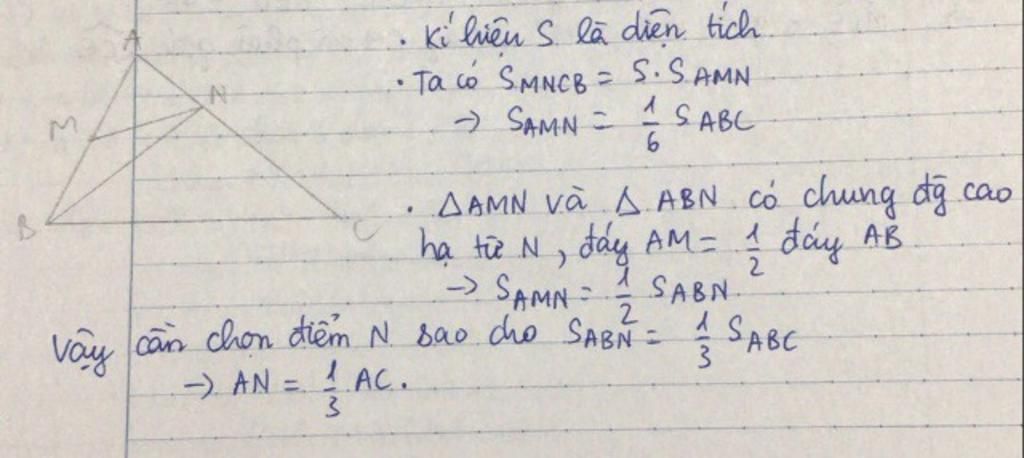 A
N
M
B
C
. Kí hiệu S là diện tích
. Ta có SMNCB = 5. SAMN
→ SAMN = 1/6 SABC
. ΔAMN và Δ ABN có chung đg cao
hạ từ N, đáy AM = 1/2 đáy AB
→ SAMN = 1/2 SABN.
Vậy cần chọn điểm N sao cho SABN = 1/3 SABC
→ AN = 1/3 AC.